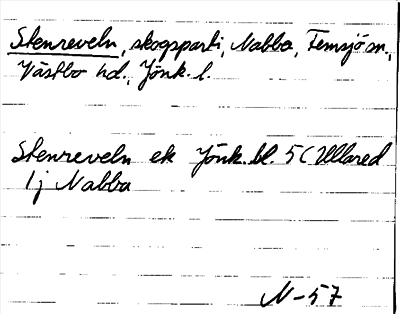 Stenreveln, skogsparti, Nabba, Femsjö sn,
Västbo hd, Jönk. l.
Stenreveln ek Jönk. bl. 5 (Ullared
1j Nabba
N-57